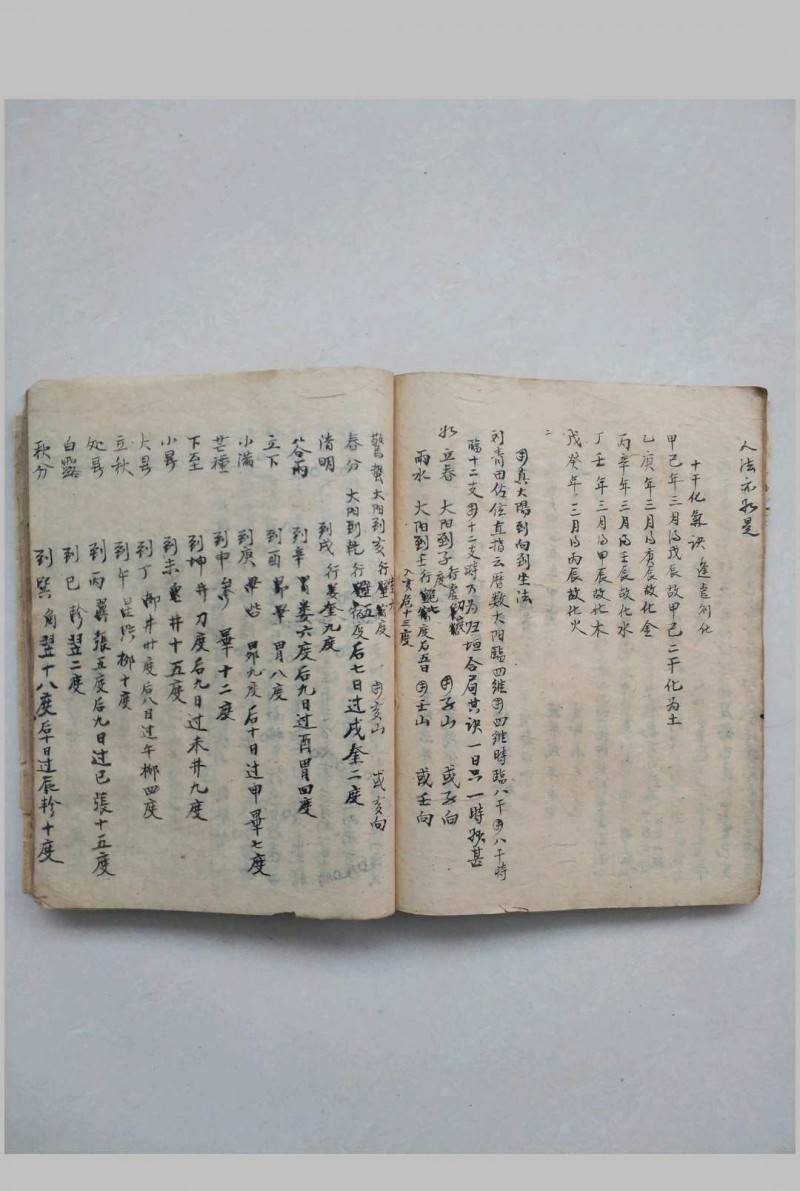 人法亦如是
十干化氣訣 逢辰則化
甲己年三月为戊辰故甲己二干化为土
乙庚年三月为庚辰故化金
丙辛年三月为壬辰故化水
丁壬年三月为甲辰故化木
戊癸年三月为丙辰故化火
用真太陽到向到坐法
刘青田佐住直指云曆数太阳臨四維用四維時臨八干用八干時
臨十二支用十二支時乃为归垣合局其訣一日只一時 甚
如立春 大阳到子 行虚 度 用子山 或子向
雨水 大阳到壬行 度后五日 用壬山 或壬向
入亥危十三度
驚蟄 太阳到亥 行 度 用亥山 或亥向
春分 太阳到乾 行 度后七日过戌奎二度
清明 到戌 行娄奎九度
谷雨 到辛 胃娄六度后九日过酉胃四度
立下 到酉 昴畢 胃八度
小滿 到庚 畢 昴九度 后十日过申畢七度
芒種 到申 參 畢十二度
下至 到坤 井 度后九日过未井九度
小暑 到未 井十五度
大暑 到丁 柳井卅度后八日过午柳四度
立秋 到午 柳十度
处暑 到丙 翼張五度后九日过巳張十五度
白露 到巳 軫翌二度
秋分 到巽 角翌十八度后十日过辰軫十度